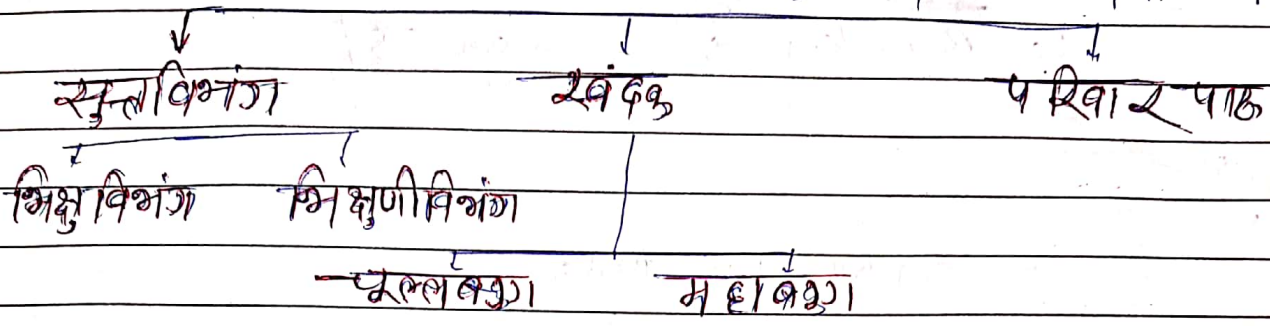 सुत्तविभंग खंदक परिवार पाठ
भिक्षुविभंग भिक्षुणीविभंग
चूल्लवग्ग महावग्ग